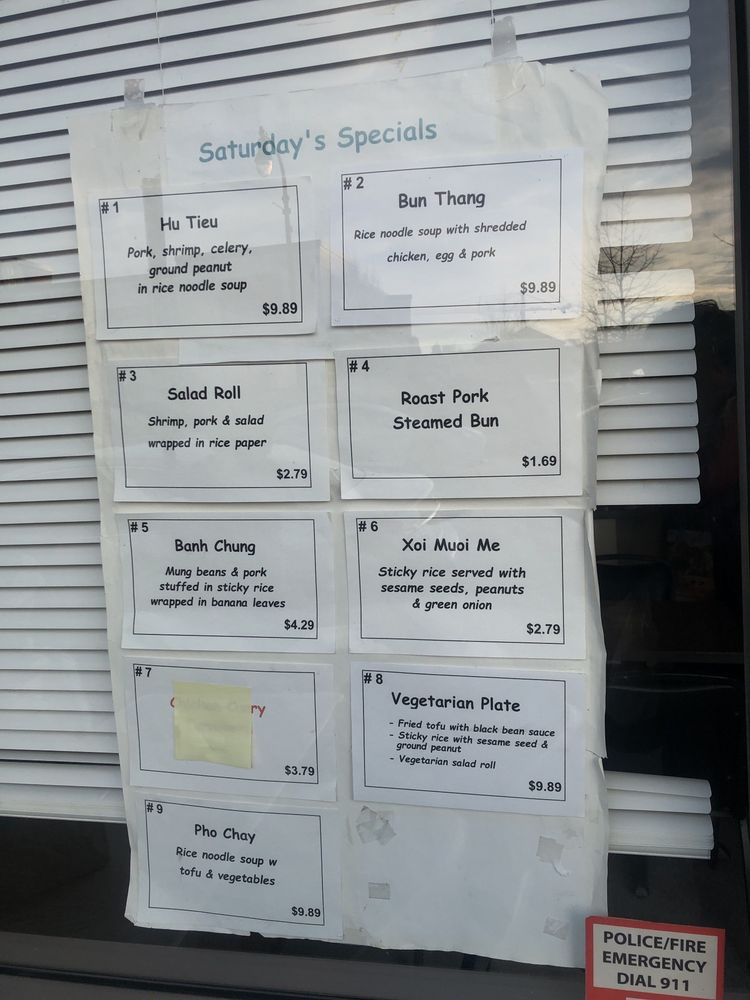 Saturday's Specials
# 1
Hu Tieu
Pork, shrimp, celery,
ground peanut
in rice noodle soup
$9.89
# 2
Bun Thang
Rice noodle soup with shredded
chicken, egg & pork
$9.89
# 3
Salad Roll
Shrimp, pork & salad
wrapped in rice paper
$2.79
# 4
Roast Pork
Steamed Bun
$1.69
# 5
Banh Chung
Mung beans & pork
stuffed in sticky rice
wrapped in banana leaves
$4.29
# 6
Xoi Muoi Me
Sticky rice served with
sesame seeds, peanuts
& green onion
$2.79
# 7
$3.79
# 8
Vegetarian Plate
- Fried tofu with black bean sauce
- Sticky rice with sesame seed &
ground peanut
- Vegetarian salad roll
$9.89
# 9
Pho Chay
Rice noodle soup w
tofu & vegetables
$9.89
POLICE/FIRE
EMERGENCY
DIAL 911